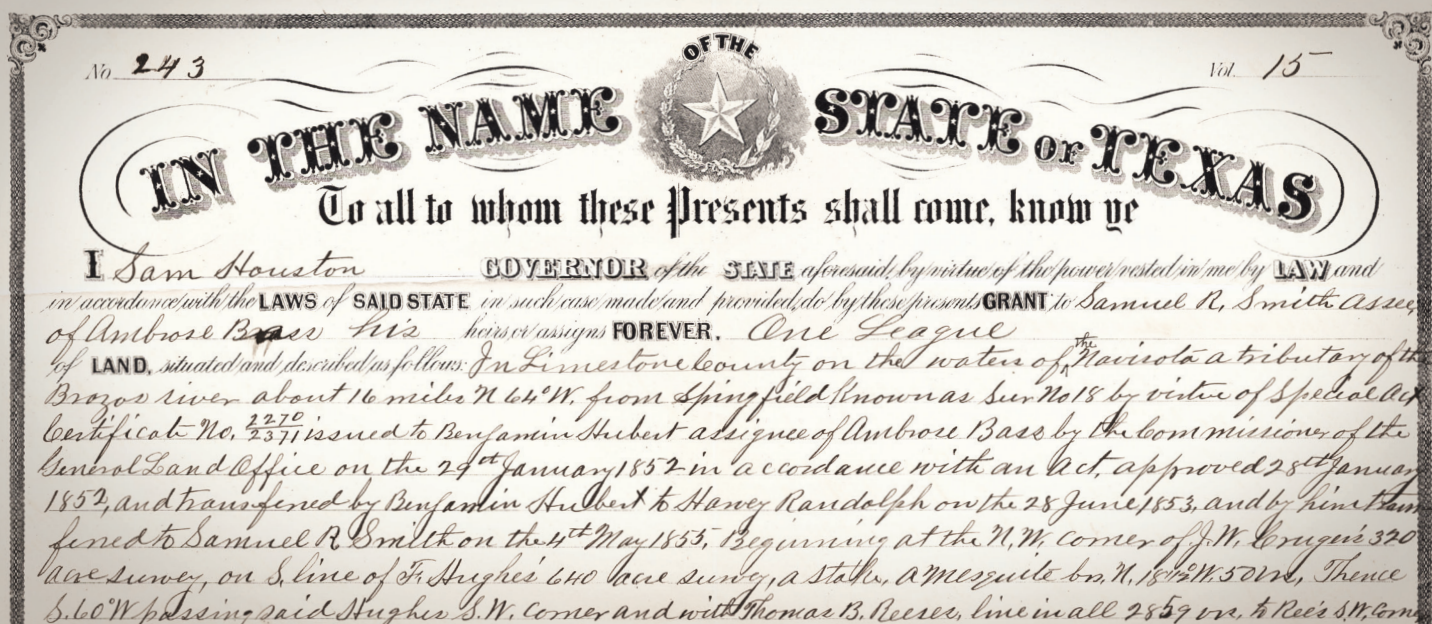 No. 243
Vol. 15
IN THE NAME OF THE STATE OF TEXAS
To all to whom these Presents shall come, know ye
I Sam Houston GOVERNOR of the STATE aforesaid, by virtue of the power vested in me by LAW and
in accordance with the LAWS of SAID STATE in such case made and provided, do by these presents GRANT to Samuel R. Smith assee,
of Ambrose Bass his heirs or assigns FOREVER. One League
of LAND, situated and described as follows: In Limestone County on the waters of the Navisota a tributary of the
Brazos river about 16 miles N 64° W. from Springfield Known as Sur No 18 by virtue of Special Act
Certificate No. 2270/2371 issued to Benjamin Hubert assignee of Ambrose Bass by the Commissioner of the
General Land Office on the 29th January 1852 in accordance with an Act, approved 28th January
1852, and transfered by Benjamin Hubert to Harvey Randolph on the 28 June 1853, and by him trans
fered to Samuel R Smith on the 4th May 1855, Beginning at the N.W. corner of J.W. Cruger's 320
acre survey, on S. line of F. Hughes' 640 acre survey, a stake, a mesquite brs. N. 18½° W. 50 vrs, Thence
S. 60° W passing said Hughes S.W. Corner and with Thomas B. Reeses, line in all 2859 vrs. to Ree's S.W. Corne